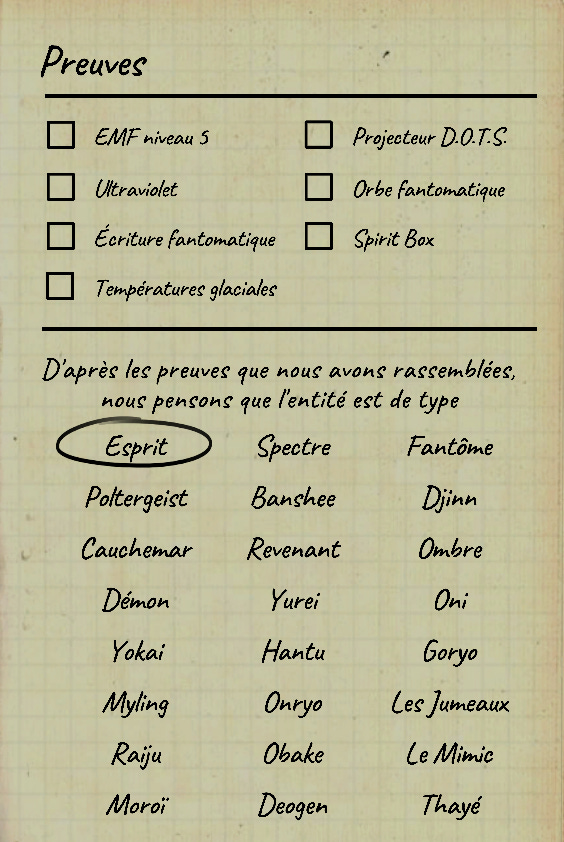 Preuves
EMF niveau 5 Projecteur D.O.T.S.
Ultraviolet Orbe fantomatique
Écriture fantomatique Spirit Box
Températures glaciales
D'après les preuves que nous avons rassemblées,
nous pensons que l'entité est de type
Esprit Spectre Fantôme
Poltergeist Banshee Djinn
Cauchemar Revenant Ombre
Démon Yurei Oni
Yokai Hantu Goryo
Myling Onryo Les Jumeaux
Raiju Obake Le Mimic
Moroï Deogen Thayé